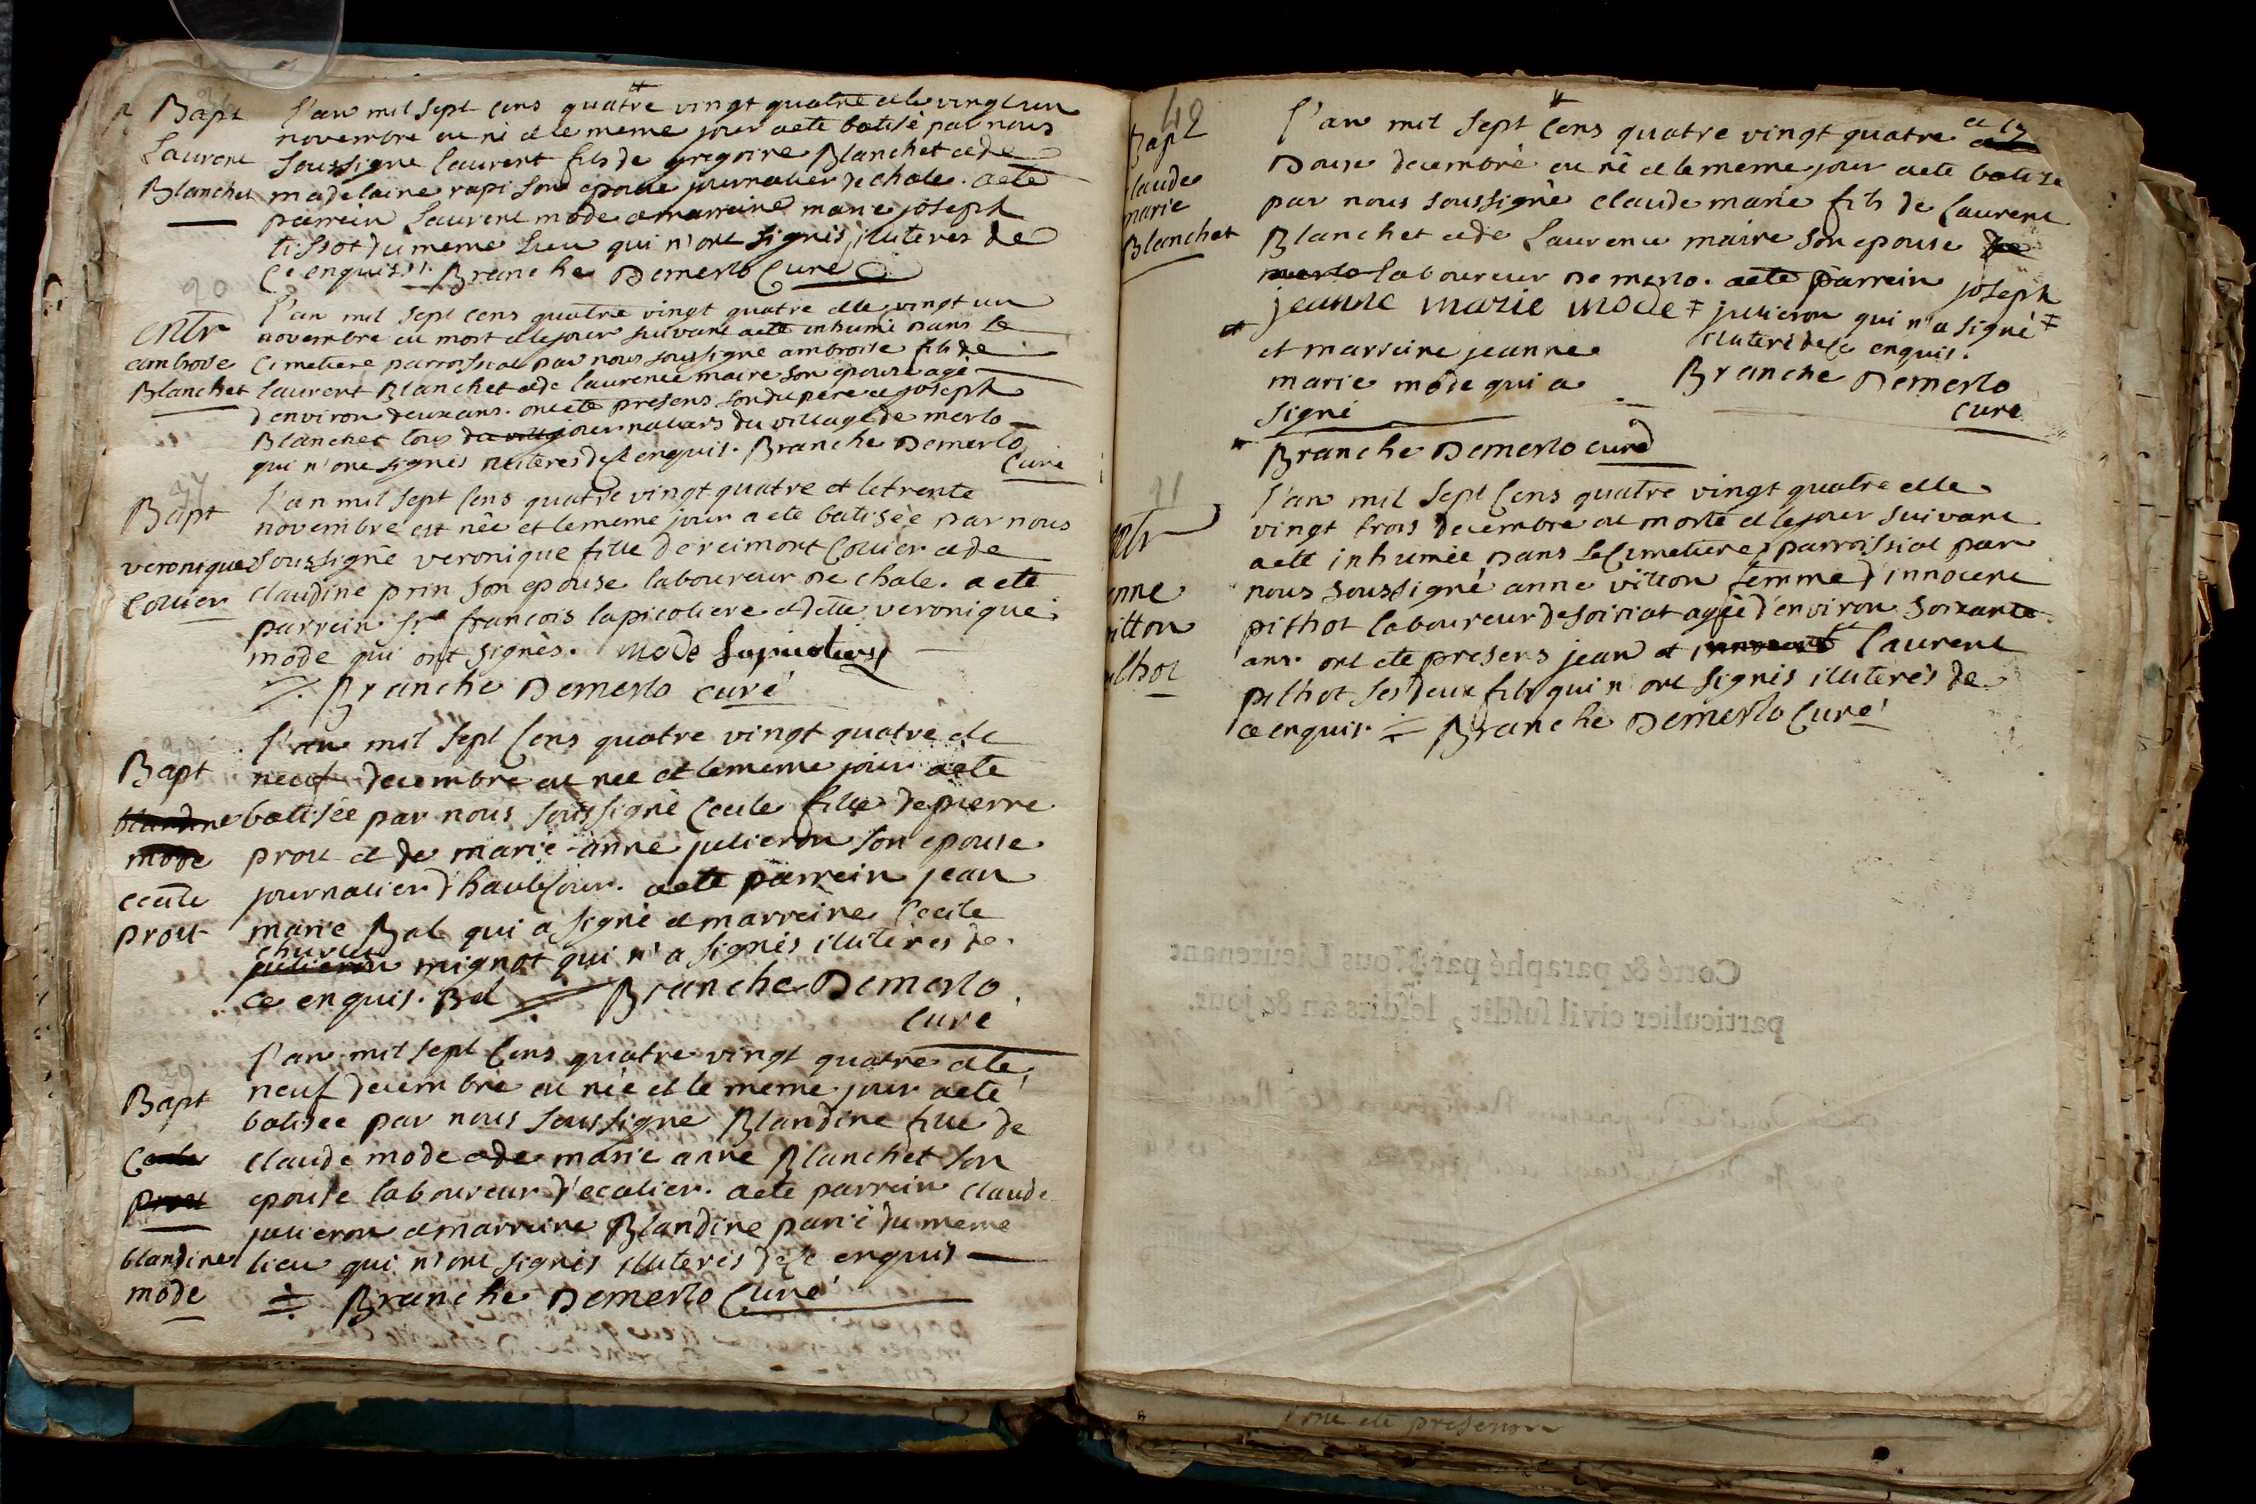 Bapt
Laurent
Blanchet
L'an mil sept cens quatre vingt quatre et le vingt un
novembre est né et le meme jour a eté batisé par nous
soussigné laurent fils de gregoire Blanchet et de
madelaine rapi son epouse journalier de chole. a eté
parrein Laurent mode et marreine marie joseph
tissot du meme lieu qui n'ont signés illiterés de
ce enquis. Branche Demerlo Curé
90
entr
ambroise
Blanchet
L'an mil sept cens quatre vingt quatre et le vingt un
novembre est mort et le jour suivant a eté inhumé dans le
cimetiere parroissial par nous soussigné ambroise fils de
laurent Blanchet et de laurence maire son epouse agé
d'environ deux ans. ont eté presens son du pere et joseph
Blanchet tous journaliers du village de merlo
qui n'ont signés illiterés de ce enquis. Branche Demerlo
Curé
Bapt
veronique
Collier
L'an mil sept cens quatre vingt quatre et le trente
novembre est née et le meme jour a eté batisée par nous
soussigné veronique fille de reimont Collier et de
claudine prin son epouse laboureur de chole. a eté
parrein Sr. francois lapicotiere et dlle veronique
mode qui ont signés. Mode Lapicotiere
Branche Demerlo curé
Bapt
blandine
mode
cecile
prost
L'an mil sept cens quatre vingt quatre et le
neuf decembre est née et le meme jour a eté
batisée par nous soussigné Cecile fille de pierre
prost et de marie anne julieron son epouse
journalier d'hautecour. a eté parrein jean
marie Bal qui a signé et marreine Cecile
julieron mignot qui n'a signés illiterés de
ce enquis. Bal Branche Demerlo
curé
Bapt
Cecile
prost
blandine
mode
L'an mil sept cens quatre vingt quatre et le
neuf decembre est née et le meme jour a eté
batisée par nous soussigné Blandine fille de
claude mode et de marie anne Blanchet son
epouse laboureur d'ecalier. a eté parrein claude
julieron et marreine Blandine parié du meme
lieu qui n'ont signés illiterés de ce enquis
Branche Demerlo Curé
Bapt
laude
marie
Blanchet
L'an mil sept cens quatre vingt quatre et le
Douse decembre est né et le meme jour a eté batisé
par nous soussigné claude marie fils de Laurent
Blanchet et de Laurence maire son epouse de
merlo laboureur de merlo. a eté parrein joseph
jeanne marie mode ‡ julieron qui n'a signé ‡
et marreine jeanne illiteré de ce enquis.
marie mode qui a Branche Demerlo
signé curé
Branche Demerlo curé
91
entr
anne
vitton
pithot
L'an mil sept cens quatre vingt quatre et le
vingt trois decembre est morte et le jour suivant
a eté inhumée dans le cimetiere parroissial par
nous soussigné anne vitton femme d'innocent
pithot laboureur de soiriat agée d'environ soixante
ans. ont eté presens jean et laurent
pithot ses deux fils qui n'ont signés illiterés de
ce enquis. Branche Demerlo Curé
Cotté & paraphé par Nous Lieutenant
particulier civil susdit, lesdits an & jour.
ont eté presens